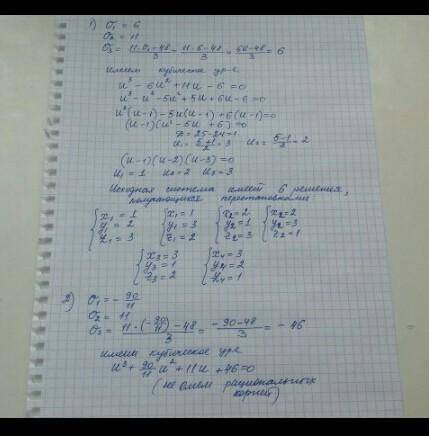 1) σ₁ = 6
σ₂ = 11
σ₃ = (11·σ₁-48)/3 = (11·6-48)/3 = (66-48)/3 = 6
имеем кубическое ур-е
u³ - 6u² + 11u - 6 = 0
u³ - u² - 5u² + 5u + 6u - 6 = 0
u²(u-1) - 5u(u-1) + 6(u-1) = 0
(u-1)(u² - 5u + 6) = 0
D = 25-24 = 1
u₁ = (5+1)/2 = 3 u₂ = (5-1)/2 = 2
(u-1)(u-2)(u-3) = 0
u₁ = 1 u₂ = 2 u₃ = 3
Исходная система имеет 6 решений,
получающихся перестановками
{x₁ = 1 {x₁ = 1 {x₂ = 2 {x₂ = 2
y₁ = 2 y₁ = 3 y₂ = 1 y₂ = 3
z₁ = 3 z₁ = 2 z₂ = 3 z₂ = 1
{x₃ = 3 {x₄ = 3
y₃ = 1 y₄ = 2
z₃ = 2 z₄ = 1
2) σ₁ = - 90/11
σ₂ = 11
σ₃ = (11·(-90/11) - 48)/3 = (-90-48)/3 = -46
имеем кубическое ур-е
u³ + 90/11 u² + 11u + 46 = 0
(не имеем рациональных
корней)